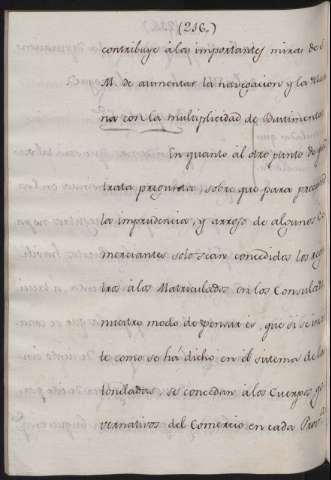 (216.)
contribuye á las importantes miras de S.
M. de aumentar la navegacion y la
na con la multiplicidad de Buttimentos
En quanto al otro punto de
trata pregunta sobre que para
la imprudencia, y arrojo de algunos Co
merciantes solo sean concedidos los
tros á los Matriculados en los Consulad
nuestro modo de pensar és, que si
te como se há dicho en el sistema de las
toneladas, se concedan á los Cuerpos gu
vernativos del Comercio en cada